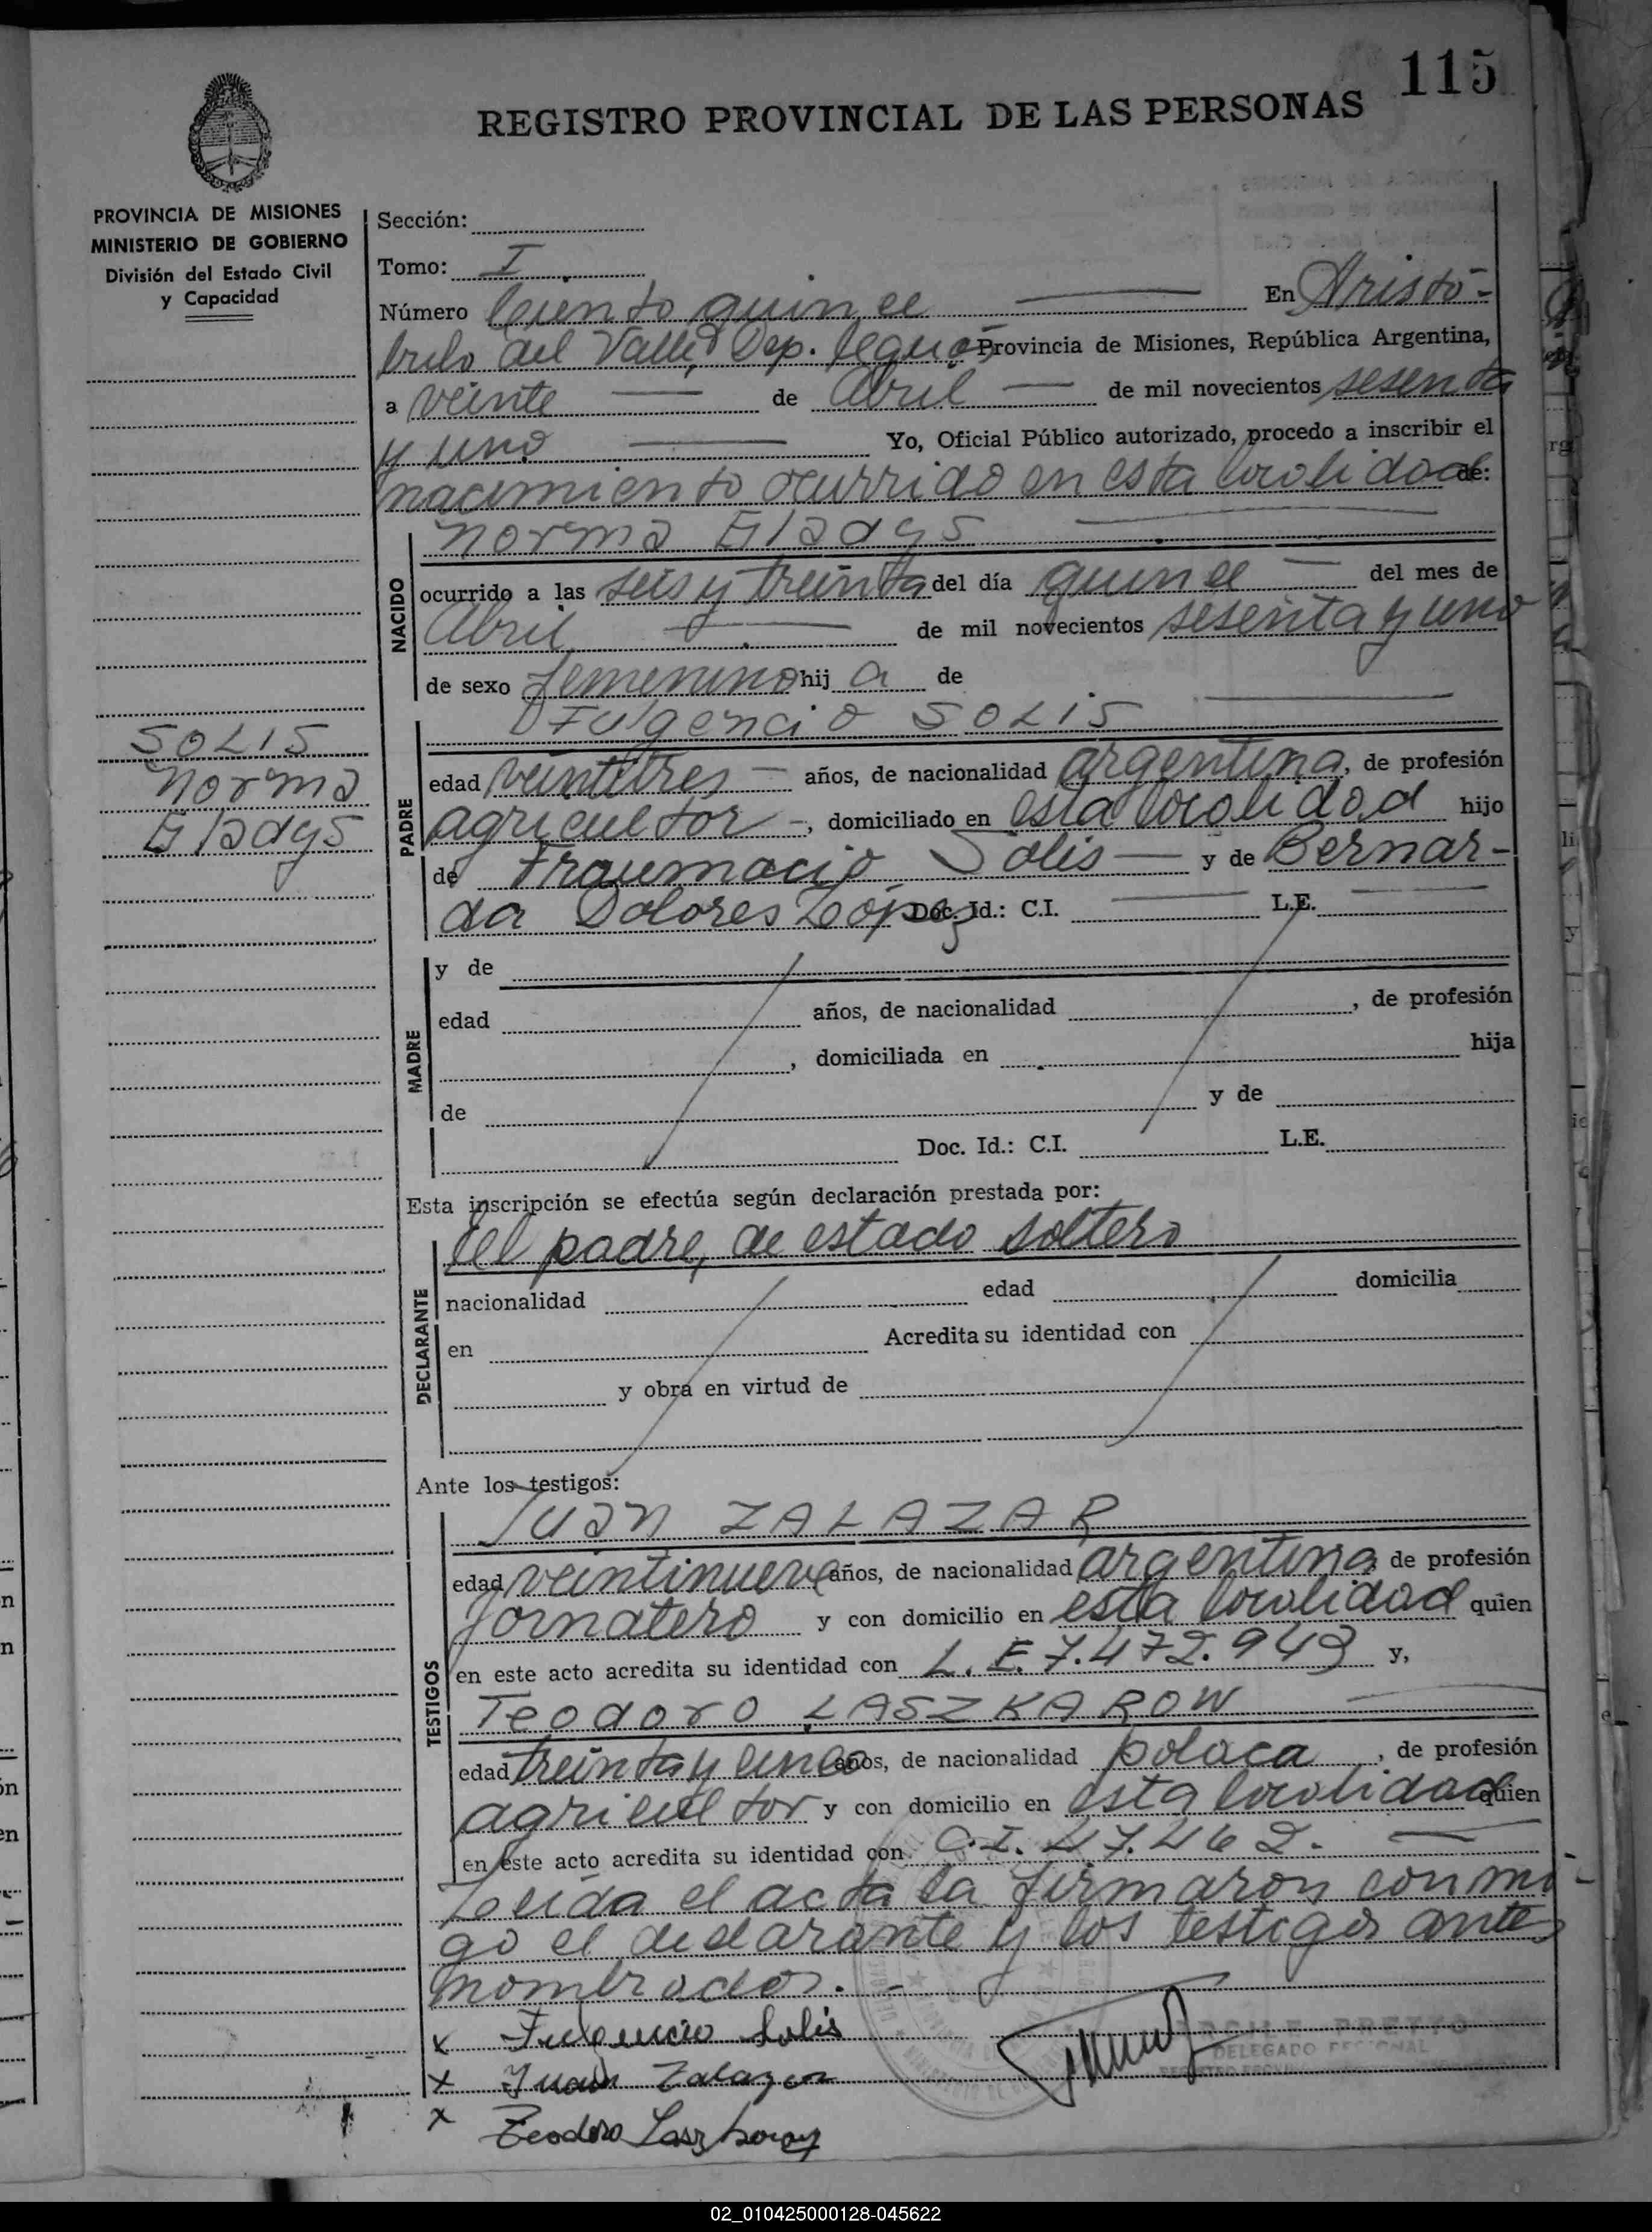 115
REGISTRO PROVINCIAL DE LAS PERSONAS
PROVINCIA DE MISIONES
MINISTERIO DE GOBIERNO
División del Estado Civil
y Capacidad
Sección:
Tomo: I
Número Ciento quince En Aristó-
bulo del Valle, Dep. Cainguás Provincia de Misiones, República Argentina,
a veinte de Abril de mil novecientos sesenta
y uno Yo, Oficial Público autorizado, procedo a inscribir el
nacimiento ocurrido en esta localidad de:
Norma Gladys
NACIDO
ocurrido a las seis y treinta del día quince del mes de
Abril de mil novecientos sesenta y uno
de sexo femenino hija de
Fulgencio SOLIS
SOLIS
Norma
Gladys
PADRE
edad veintitres años, de nacionalidad argentina, de profesión
agricultor, domiciliado en esta localidad hijo
de Solis y de Bernar-
da Dolores Lopez Doc. Id.: C.I. L.E.
MADRE
y de
edad años, de nacionalidad , de profesión
, domiciliada en hija
de y de
Doc. Id.: C.I. L.E.
Esta inscripción se efectúa según declaración prestada por:
el padre, de estado soltero
DECLARANTE
nacionalidad edad domicilia
en Acredita su identidad con
y obra en virtud de
Ante los testigos:
Juan ZALAZAR
TESTIGOS
edad veintinueve años, de nacionalidad argentina de profesión
jornalero y con domicilio en esta localidad quien
en este acto acredita su identidad con L.E. 7.472.943 y,
Teodoro LASZKAROW
edad treinta y cinco años, de nacionalidad polaca, de profesión
agricultor y con domicilio en esta localidad quien
en este acto acredita su identidad con C.I. 47.462.
Leida el acta la firmaron conmi-
go el declarante y los testigos antes
nombrados.-
x Fulgencio Solis
x Juan Zalazar
x Teodoro
PRETTO
DELEGADO
02_010425000128-045622